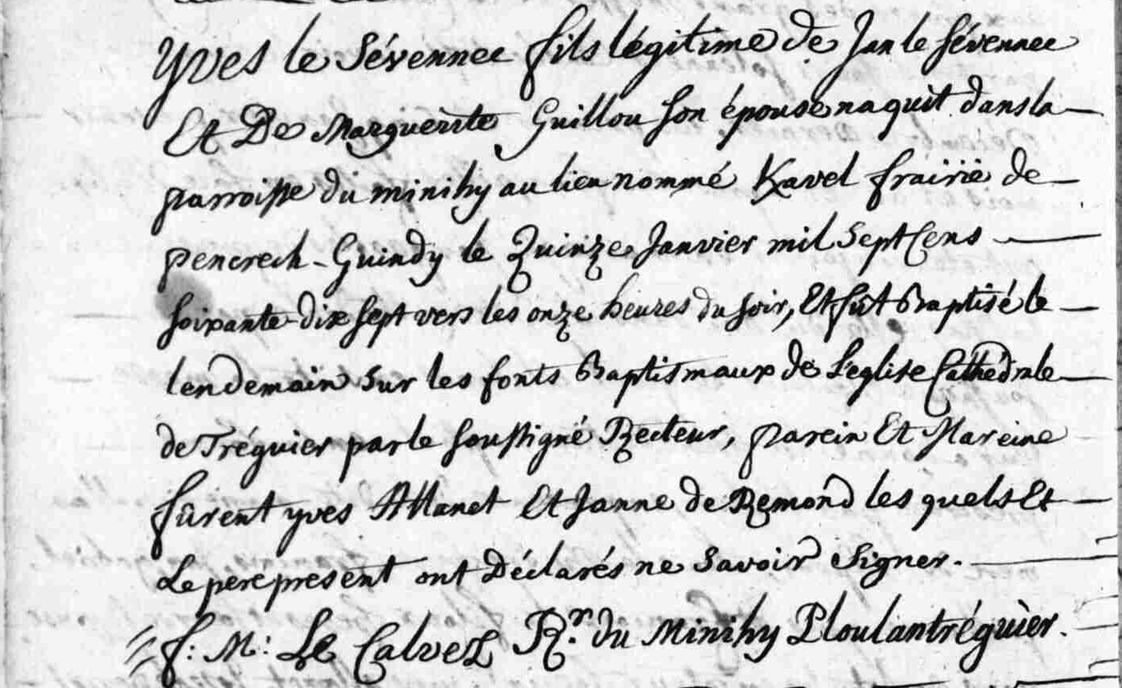 Yves le Sévennec fils légitime de Jan le Sévennec
Et De Marguerite Guillou son épouse naquit dans la
parroisse du minihy au lieu nommé Kavel frairië de
pencrech-Guindy le Quinze Janvier mil Sept Cens
soixante-dix sept vers les onze heures du soir, Et fut Baptisé le
lendemain sur les fonts Baptismaux de L'eglise Cathédrale
de Tréguier par le soussigné Recteur, parein Et Mareine
fûrent yves Allanet Et Janne de Remond les quels Et
Le pere present ont Déclarés ne Savoir Signer.
f: M: Le Calvez Rr. du Minihy Ploulantréguier.